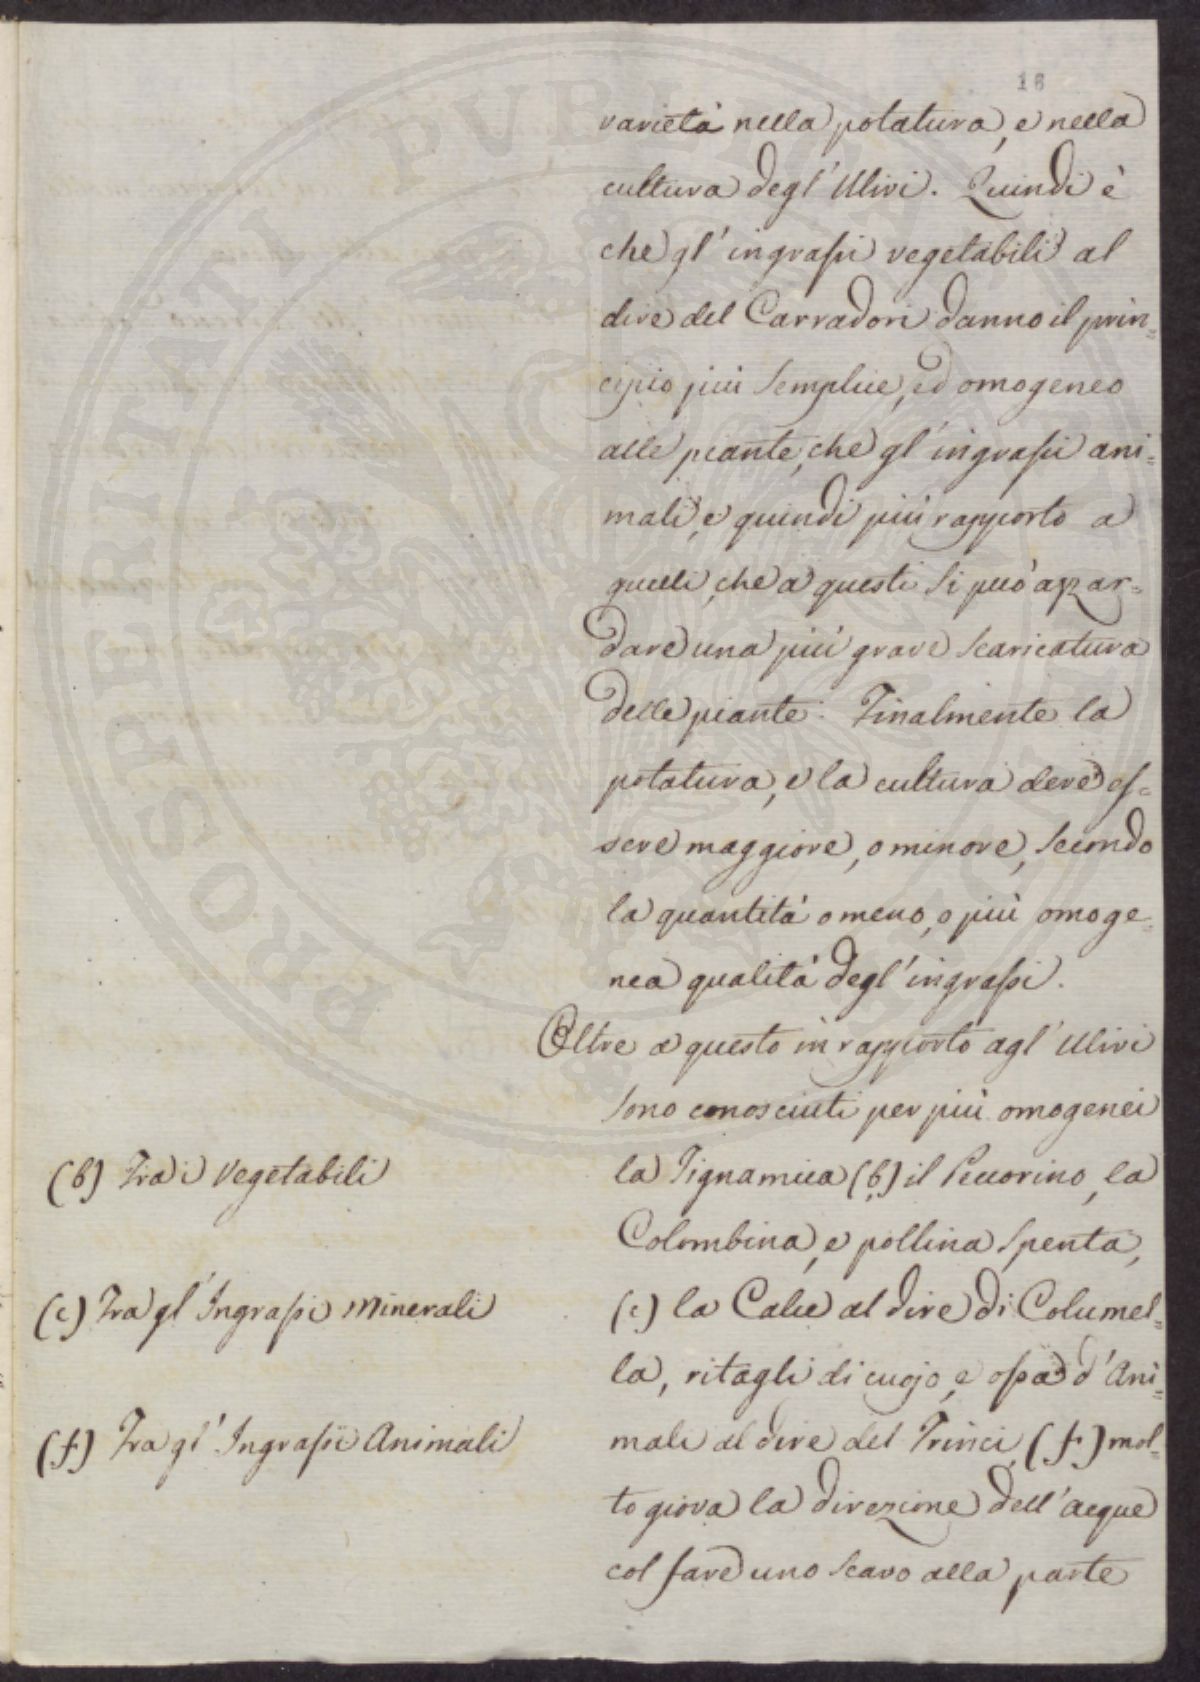 16
varietà nella potatura, e nella
cultura degl' Ulivi. Quindi è
che gl' ingrassi vegetabili al
dire del Carradori danno il prin=
cipio più semplice, ed omogeneo
alle piante, che gl' ingrassi ani=
mali, e quindi più rapporto a
quelli, che a questi si può azzar=
dare una più grave scaricatura
delle piante. Finalmente la
potatura, e la cultura deve es=
sere maggiore, o minore, secondo
la quantità o meno, o più omoge=
nea qualità degl' ingrassi.
Oltre a questo in rapporto agl' Ulivi
sono conosciuti per più omogenei
(b) Tra i Vegetabili
la Tignamica (b) il Pecorino, la
Colombina, e pollina spenta,
(c) Tra gl' Ingrassi Minerali
(c) la Calce al dire di Columel=
la, ritagli di cuojo, e ossa d' Ani=
(f) Tra gl' Ingrassi Animali
mali al dire del Trinci, (f) mol=
to giova la direzione dell' acque
col fare uno scavo alla parte
PROSPERITATI PUBLICAE